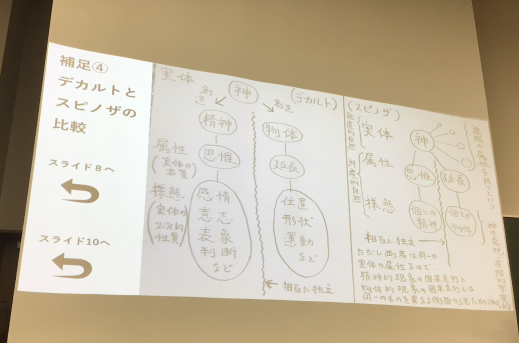 補足④
デカルトと
スピノザの
比較
スライド8へ
スライド10へ
実体
神
(デカルト)
創造
創造
精神
物体
属性
(実体の本質)
思惟
延長
様態
(実体の2次的性質)
感情
意志
表象
判断
など
位置
形状
運動
など
相互に独立
(スピノザ)
実体
神
属性
思惟
延長
様態
個々の精神
個々の物体
相互に独立
ただし両者は同一の
実体の属性なので、
精神的現象の因果系列と
物体的現象の因果系列とは
同一のものを異なる側面から見た